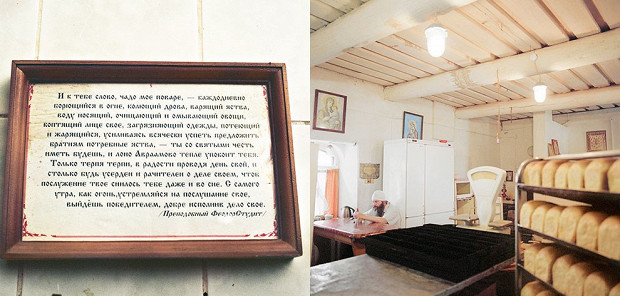 И к тебе слово, чадо мое поваре, — каждодневно
борющийся в огне, колющий дрова, варящий яства,
воду носящий, очищающий и омывающий овощи,
коптящий лице свое, загрязняющий одежды, потеющий
и жарящийся, усиливаясь всячески успеть предложить
братиям потребные яства, — ты со святыми честь
иметь будешь, и лоно Авраамово тепле упокоит тебя.
Только терпя терпи, в радости проводя день свой, и
столько будь усерден и рачителен о деле своем, чтоб
послужение твое снилось тебе даже и во сне. С самого
утра, как огонь,устремляйся на послушание свое,
выйдешь победителем, добре исполнив дело свое.
/Преподобный ФеодорСтудит/